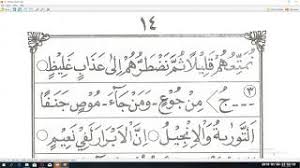 ١٤
نُمَتِّعُهُمْ قَلِيلًا ثُمَّ نَضْطَرُّهُمْ إِلَىٰ عَذَابٍ غَلِيظٍ
٣ ... ج / مِنْ جُوْعٍ - وَمَنْ جَآءَ - مُوْصٍ جَنَفًا
التَّوْرٰىةَ وَالْاِنْجِيْلَ ○ اِنَّ الْاَبْرَارَ لَفِيْ نَعِيْمٍ